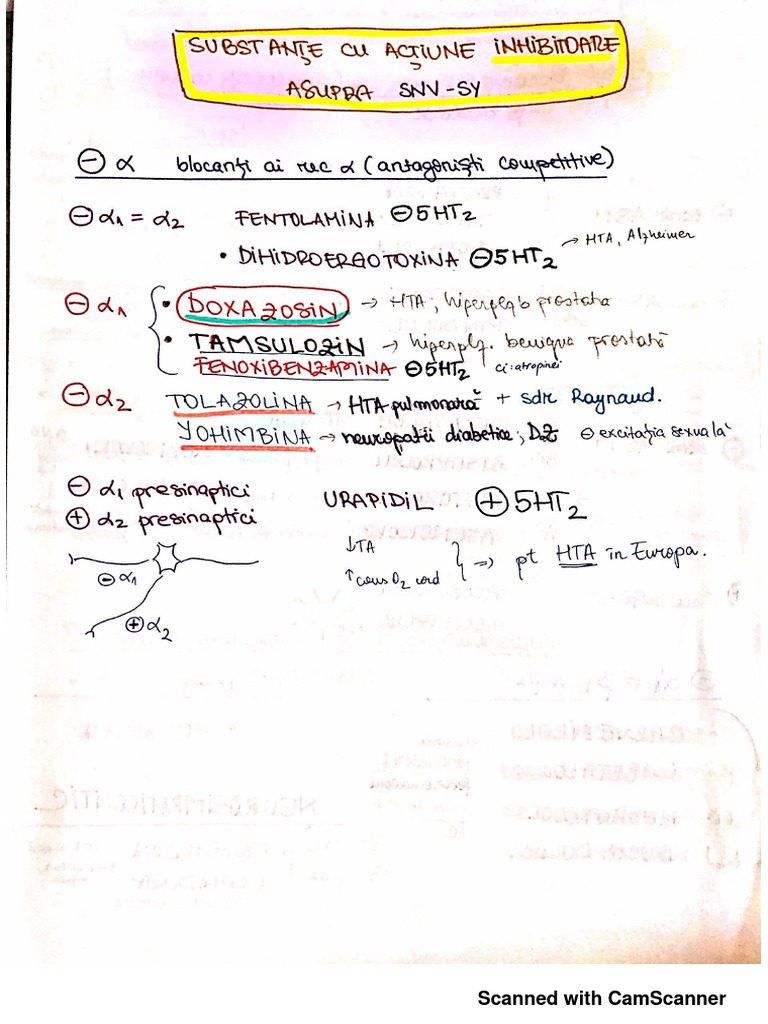 SUBSTANȚE CU ACȚIUNE INHIBITOARE
ASUPRA SNV-SY
⊖ α blocanți ai rec α (antagoniști competitive)
⊖ α1 = α2 FENTOLAMINA ⊖5HT2
• DIHIDROERGOTOXINA ⊖5HT2 → HTA, Alzheimer
⊖ α1 { • DOXAZOSIN → HTA; hiperpl prostata
• TAMSULOZIN → hiperplz. benigna prostată
FENOXIBENZAMINA ⊖5HT2 ci: atropinei
⊖ α2 TOLAZOLINA → HTA pulmonară + sdr Raynaud.
YOHIMBINA → neuropatii diabetice; DZ ⊖ excitația sexuală
⊖ α1 presinaptici
⊕ α2 presinaptici
URAPIDIL ⊕ 5HT2
↓TA
↑ cons O2 cord } => pt HTA în Europa.
⊖ α1
⊕ α2
Scanned with CamScanner